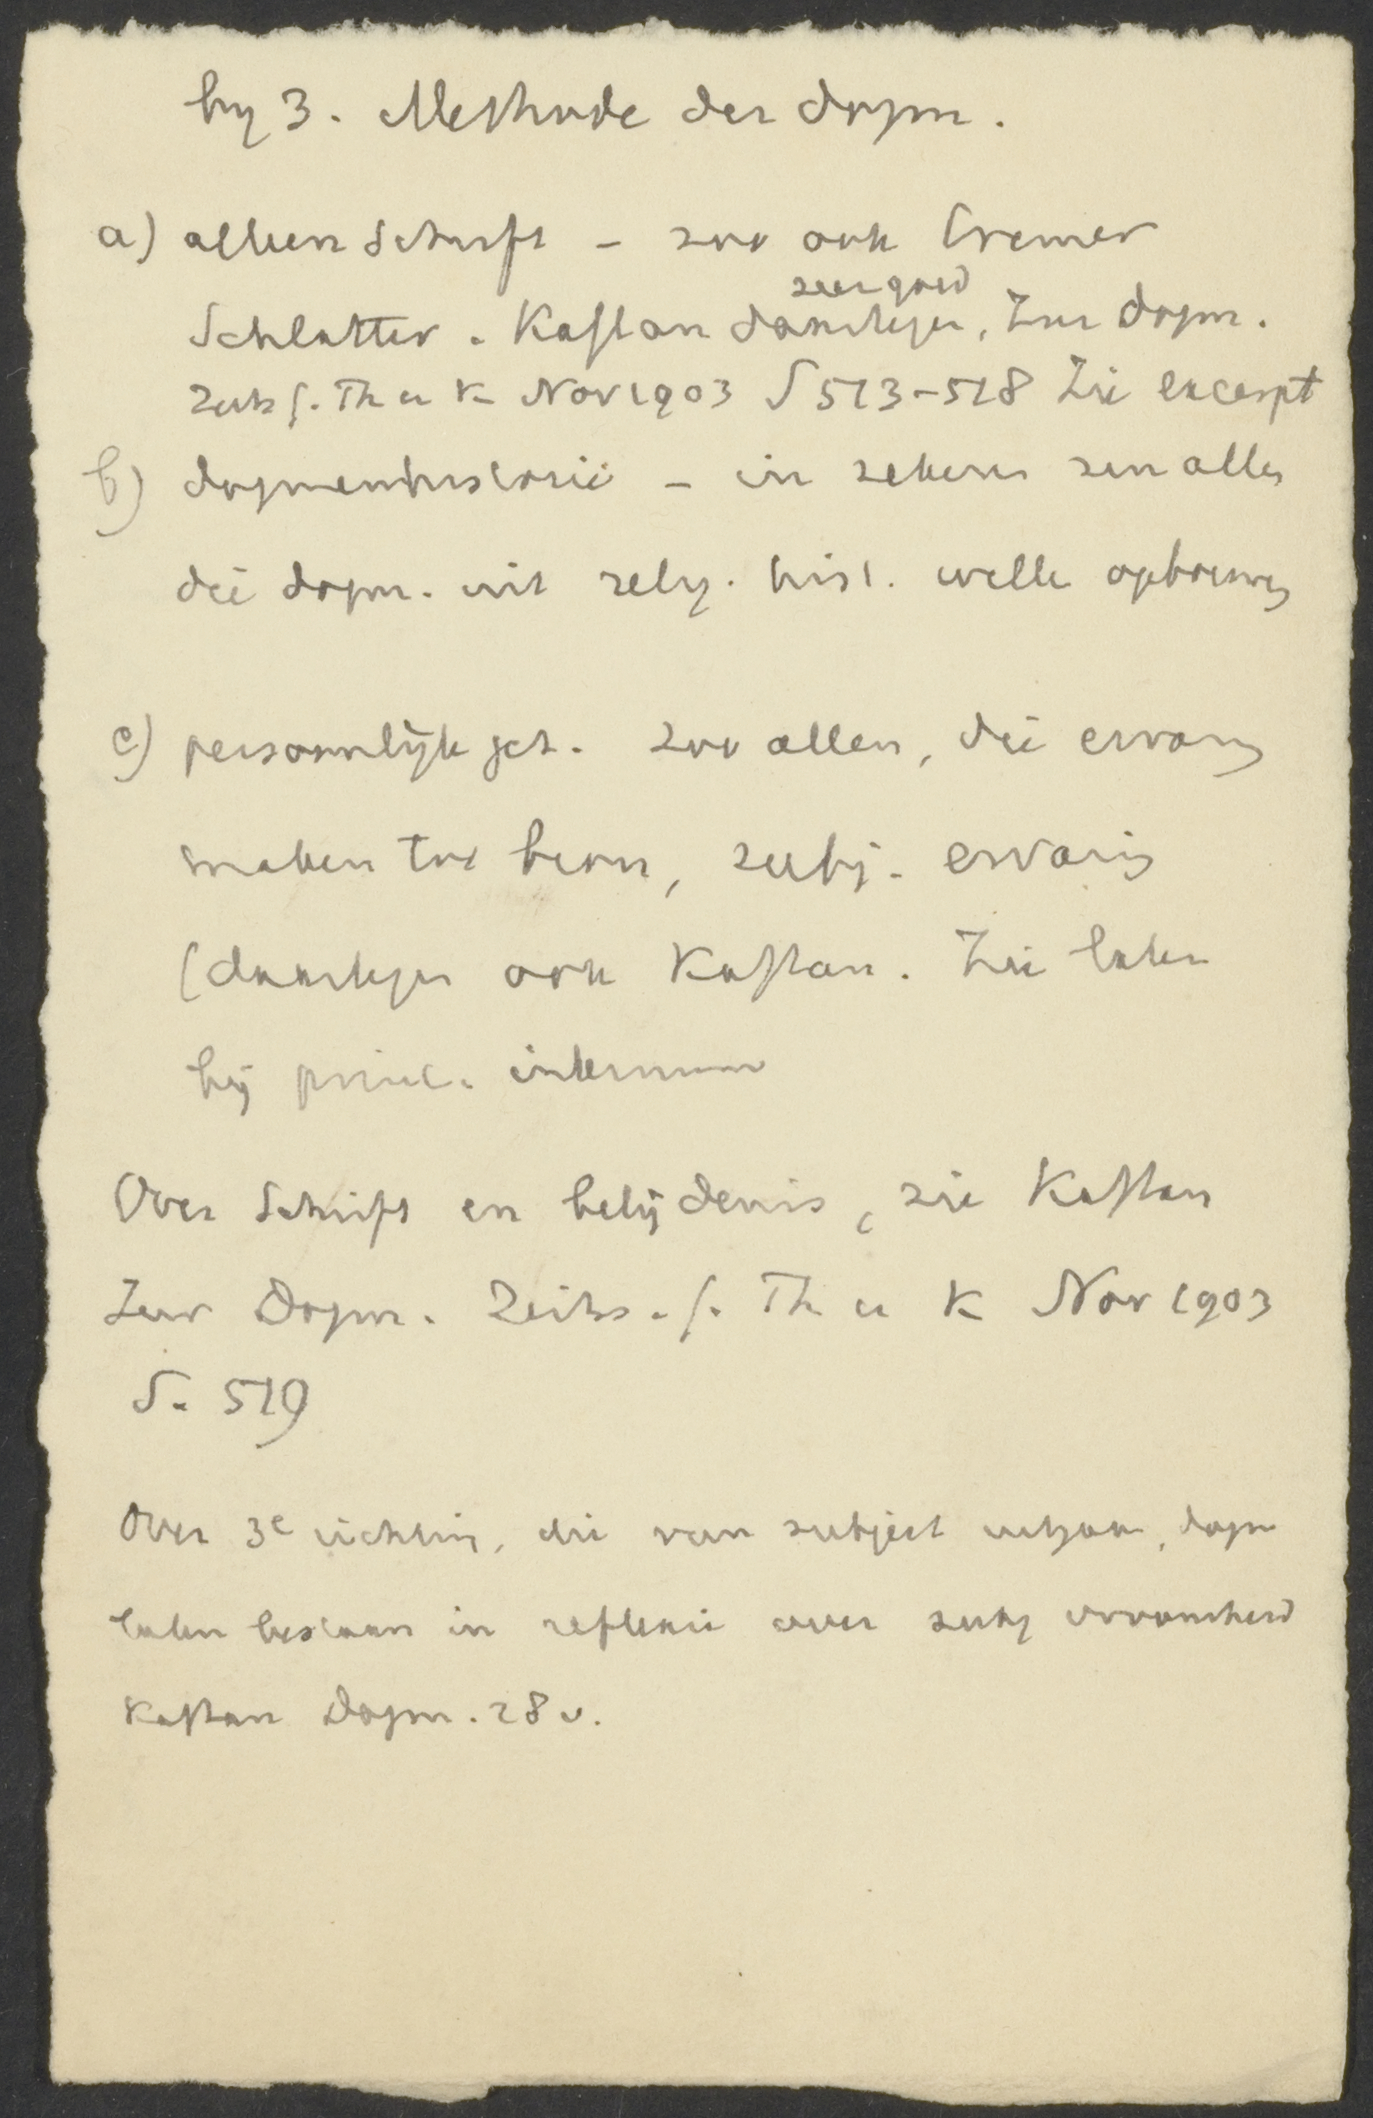 by 3. Methode der dogm.
a) alleen Schrift - zoo ook Cremer
zeer goed
Schlatter. Kaftan daartegen, Zur Dogm.
Zeits f. Th u K Nov 1903 S 513-518 Zie excerpt
b) dogmenhistorie - in zekeren zin allen
die dogm. uit relig. hist. willen opbouwen
c) persoonlijk gel. zoo allen, die ervaring
maken tot bron, subj. ervaring
(daartegen ook Kaftan. Zie later
bij princ. internum
Over Schrift en belijdenis, zie Kaftan
Zur Dogm. Zeits. f. Th u K Nov 1903
S. 519
Over 3e richting, die van subject uitgaan, dogm
laten bestaan in reflexie over subj vroomheid
Kaftan Dogm. 28 v.